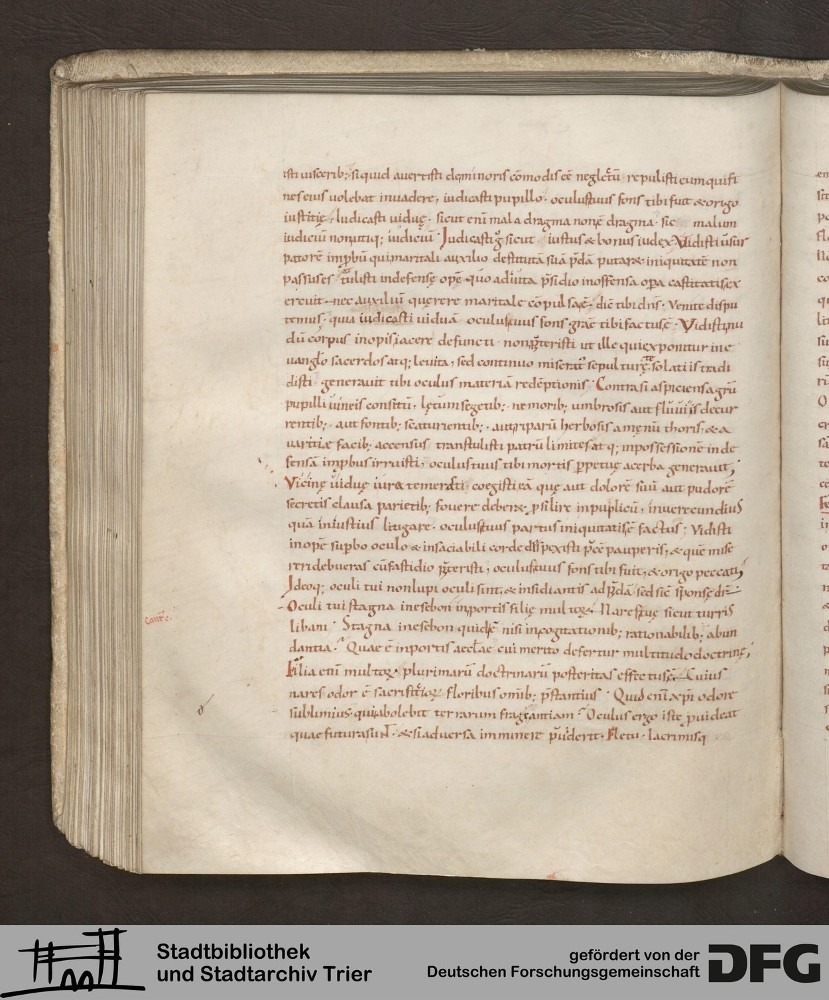 isti viscerib; si quid avertisti de minoris cōmodis eē neglectū repulisti eum qui fi
nes eius volebat invadere, iudicasti pupillo. oculus tuus fons tibi fuit & origo
iustitię. Iudicasti viduę. sicut enī mala dragma non ē dragma. sic malum
iudiciū non utiq; iudiciū. Judicasti g sicut iustus & bonus iudex. Vidisti
patorē impbū qui maritali auxilio destitutā suā p̄dā putar& iniquitatē non
passus es tulisti indefensę opē quo adiuta p̄sidio inoffensa opa castitatis ex
crevit nec auxiliū querere maritale compulsa ē, dic& tibi dn̄s. Venite dispu
temus. quia iudicasti viduā oculus tuus fons grae tibi factus ē. Vidisti nu
dū corpus inopis iacere defuncti non p̄teristi ut ille qui exponitur in e
vanglo sacerdos atq; levita, sed continuo miserat sepulturę solati is tradi
disti. generavit tibi oculus materiā redēptionis. Contra si aspiciens agrū
pupilli vineis consitū. lętum segetib;. nemorib; umbrosis aut fluviis decur
rentib;. aut fontib; scaturientib;. aut riparū herbosis amęnū thoris, & a
varitiae facib; accensus transtulisti patrū limites atq; in possessionē inde
fensā impbus irruisti, oculus tuus tibi mortis ppetuę acerba generavit;
Vicinę viduę iura temerasti coegisti eā quę aut dolorē suū aut pudorē
secretis clausa parietib; fovere deber&, psilire in puplicū, inverecundius
quā iniustius litigare. oculus tuus partus iniquitatis ē factus; Vidisti
inopē supbo oculo & insaciabili corde despexisti pcē pauperis, & quē mise
reri debueras cū fastidio p̄teristi, oculus tuus fons tibi fuit, & origo peccati;
Ideoq; oculi tui non lupi oculi sint, & insidiantis ad p̄dā sed sic sponsę dr̄
Oculi tui stagna in esebon in portis filię multorū. Nares tuę sicut turris
Cantic c.
libani. Stagna in esebon quid ē nisi in cogitationib; rationabilib; abun
dantia. Quae ē in portis aeclae cui merito defertur multitudo doctrinę;
Filia enī multorū plurimarū doctrinarū posteritas effecta ē. Cuius
nares odor ē sacrificiorū floribus omib; p̄stantius. Quid enī xpi odore
sublimius. qui abolebit terrarum fragrantiam. Oculus ergo iste pvideat
quae futura sunt. & si adversa imminere pviderit. Fletu. lacrimisq
Stadtbibliothek
und Stadtarchiv Trier
gefördert von der
Deutschen Forschungsgemeinschaft
DFG